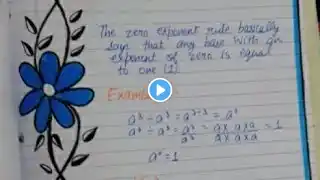 The zero exponent rule basically
says that any base with an
exponent of zero is equal
to one (1)
Exam
a³ ÷ a³ = a³⁻³ = a⁰
a³ ÷ a³ = a³/a³ = a x a x a / a x a x a = 1
a⁰ = 1